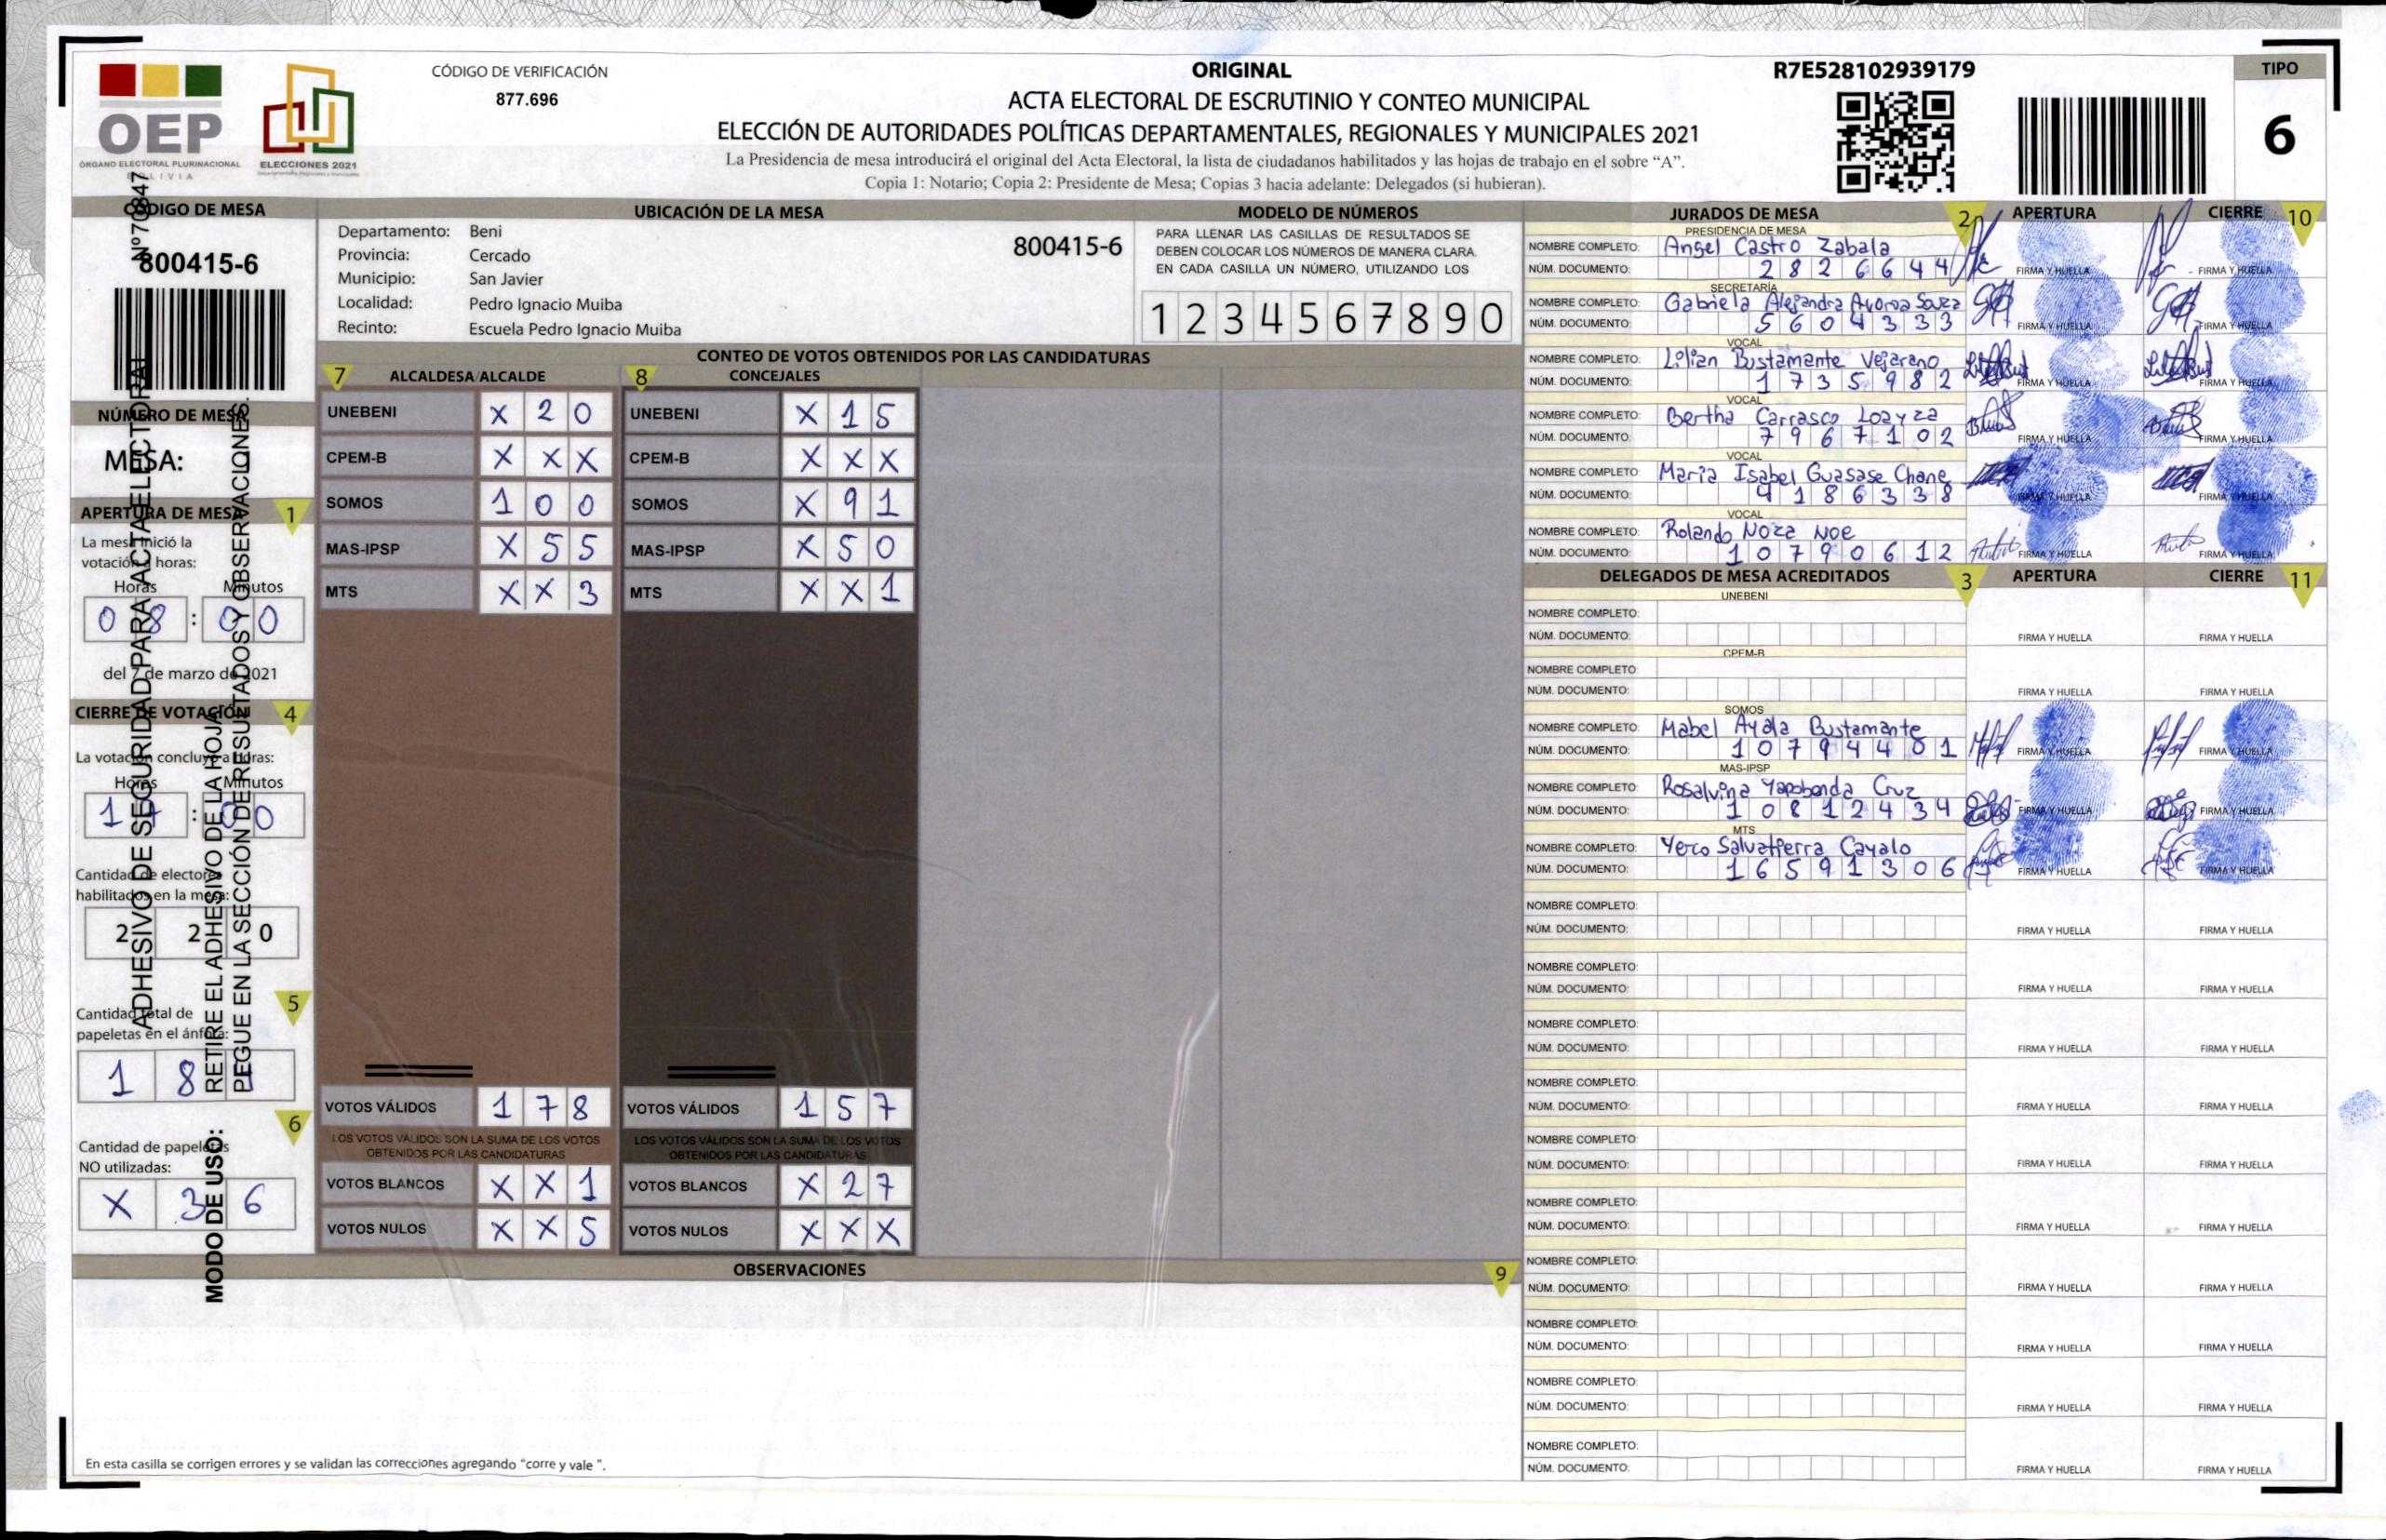 OEP
ÓRGANO ELECTORAL PLURINACIONAL
BOLIVIA
ELECCIONES 2021
CÓDIGO DE VERIFICACIÓN
877.696
ORIGINAL
ACTA ELECTORAL DE ESCRUTINIO Y CONTEO MUNICIPAL
ELECCIÓN DE AUTORIDADES POLÍTICAS DEPARTAMENTALES, REGIONALES Y MUNICIPALES 2021
La Presidencia de mesa introducirá el original del Acta Electoral, la lista de ciudadanos habilitados y las hojas de trabajo en el sobre “A”.
Copia 1: Notario; Copia 2: Presidente de Mesa; Copias 3 hacia adelante: Delegados (si hubieran).
R7E528102939179
TIPO
6
CÓDIGO DE MESA
800415-6
NÚMERO DE MESA
MESA:
APERTURA DE MESA 1
La mesa inició la
votación a horas:
Horas Minutos
08:00
del 7 de marzo de 2021
CIERRE DE VOTACIÓN 4
La votación concluyó a horas:
Horas Minutos
17:00
Cantidad de electores
habilitados en la mesa:
2 2 0
5
Cantidad total de
papeletas en el ánfora:
1 8
6
Cantidad de papeletas
NO utilizadas:
X 3 6
ADHESIVO DE SEGURIDAD PARA ACTA ELECTORAL
MODO DE USO: RETIRE EL ADHESIVO DE LA HOJA
PEGUE EN LA SECCIÓN DE RESULTADOS Y OBSERVACIONES.
UBICACIÓN DE LA MESA
Departamento: Beni
Provincia: Cercado
Municipio: San Javier
Localidad: Pedro Ignacio Muiba
Recinto: Escuela Pedro Ignacio Muiba
800415-6
MODELO DE NÚMEROS
PARA LLENAR LAS CASILLAS DE RESULTADOS SE
DEBEN COLOCAR LOS NÚMEROS DE MANERA CLARA.
EN CADA CASILLA UN NÚMERO, UTILIZANDO LOS
1 2 3 4 5 6 7 8 9 0
CONTEO DE VOTOS OBTENIDOS POR LAS CANDIDATURAS
7 ALCALDESA/ALCALDE 8 CONCEJALES
UNEBENI X 2 0 UNEBENI X 1 5
CPEM-B X X X CPEM-B X X X
SOMOS 1 0 0 SOMOS X 9 1
MAS-IPSP X 5 5 MAS-IPSP X 5 0
MTS X X 3 MTS X X 1
VOTOS VÁLIDOS 1 7 8 VOTOS VÁLIDOS 1 5 7
LOS VOTOS VÁLIDOS SON LA SUMA DE LOS VOTOS LOS VOTOS VÁLIDOS SON LA SUMA DE LOS VOTOS
OBTENIDOS POR LAS CANDIDATURAS OBTENIDOS POR LAS CANDIDATURAS
VOTOS BLANCOS X X 1 VOTOS BLANCOS X 2 7
VOTOS NULOS X X 5 VOTOS NULOS X X X
OBSERVACIONES 9
En esta casilla se corrigen errores y se validan las correcciones agregando "corre y vale ".
JURADOS DE MESA 2 APERTURA CIERRE 10
PRESIDENCIA DE MESA
NOMBRE COMPLETO: Angel Castro Zabala
NÚM. DOCUMENTO: 2826644 FIRMA Y HUELLA FIRMA Y HUELLA
SECRETARÍA
NOMBRE COMPLETO: Gabriela Alejandra Ayoroa Souza
NÚM. DOCUMENTO: 5604333 FIRMA Y HUELLA FIRMA Y HUELLA
VOCAL
NOMBRE COMPLETO: Lilian Bustamante Vejarano
NÚM. DOCUMENTO: 1735982 FIRMA Y HUELLA FIRMA Y HUELLA
VOCAL
NOMBRE COMPLETO: Bertha Carrasco Loayza
NÚM. DOCUMENTO: 7967102 FIRMA Y HUELLA FIRMA Y HUELLA
VOCAL
NOMBRE COMPLETO: Maria Isabel Guasase Chane
NÚM. DOCUMENTO: 4186338 FIRMA Y HUELLA FIRMA Y HUELLA
VOCAL
NOMBRE COMPLETO: Rolando Noza Noe
NÚM. DOCUMENTO: 10790612 FIRMA Y HUELLA FIRMA Y HUELLA
DELEGADOS DE MESA ACREDITADOS 3 APERTURA CIERRE 11
UNEBENI
NOMBRE COMPLETO:
NÚM. DOCUMENTO: FIRMA Y HUELLA FIRMA Y HUELLA
CPEM-B
NOMBRE COMPLETO:
NÚM. DOCUMENTO: FIRMA Y HUELLA FIRMA Y HUELLA
SOMOS
NOMBRE COMPLETO: Mabel Ayala Bustamante
NÚM. DOCUMENTO: 10794401 FIRMA Y HUELLA FIRMA Y HUELLA
MAS-IPSP
NOMBRE COMPLETO: Rosalvina Yapobenda Cruz
NÚM. DOCUMENTO: 10812434 FIRMA Y HUELLA FIRMA Y HUELLA
MTS
NOMBRE COMPLETO: Yerco Salvatierra Cayalo
NÚM. DOCUMENTO: 16591306 FIRMA Y HUELLA FIRMA Y HUELLA
NOMBRE COMPLETO:
NÚM. DOCUMENTO: FIRMA Y HUELLA FIRMA Y HUELLA
NOMBRE COMPLETO:
NÚM. DOCUMENTO: FIRMA Y HUELLA FIRMA Y HUELLA
NOMBRE COMPLETO:
NÚM. DOCUMENTO: FIRMA Y HUELLA FIRMA Y HUELLA
NOMBRE COMPLETO:
NÚM. DOCUMENTO: FIRMA Y HUELLA FIRMA Y HUELLA
NOMBRE COMPLETO:
NÚM. DOCUMENTO: FIRMA Y HUELLA FIRMA Y HUELLA
NOMBRE COMPLETO:
NÚM. DOCUMENTO: FIRMA Y HUELLA FIRMA Y HUELLA
NOMBRE COMPLETO:
NÚM. DOCUMENTO: FIRMA Y HUELLA FIRMA Y HUELLA
NOMBRE COMPLETO:
NÚM. DOCUMENTO: FIRMA Y HUELLA FIRMA Y HUELLA
NOMBRE COMPLETO:
NÚM. DOCUMENTO: FIRMA Y HUELLA FIRMA Y HUELLA
NOMBRE COMPLETO:
NÚM. DOCUMENTO: FIRMA Y HUELLA FIRMA Y HUELLA